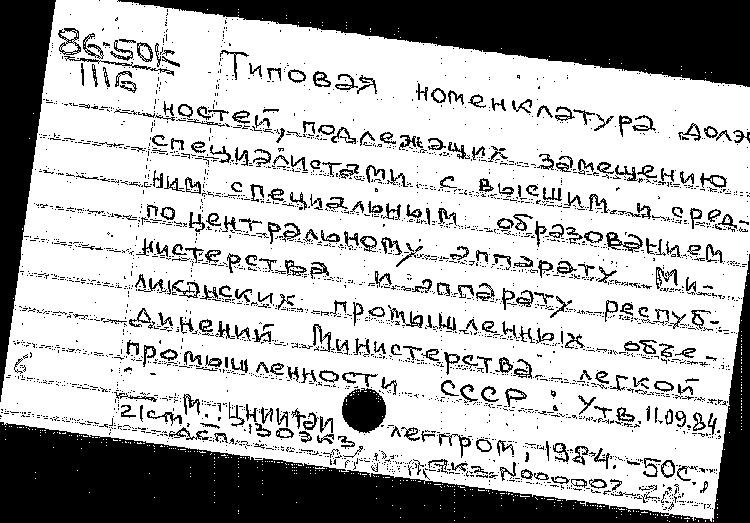 86-50К
IIIБ
Типовая номенклатура долж
ностей, подлежащих замещению
специалистами с высшим и сред-
ним специальным образованием
по центральному аппарату Ми-
нистерства и аппарату респуб-
ликанских промышленных объе-
динений Министерства легкой
промышленности СССР: Утв. 11.09.84.
М.: ЦНИИТЭИ легпром, 1984. -50с.,
21см. - 303кз.
ДСП. экз. N000002
6